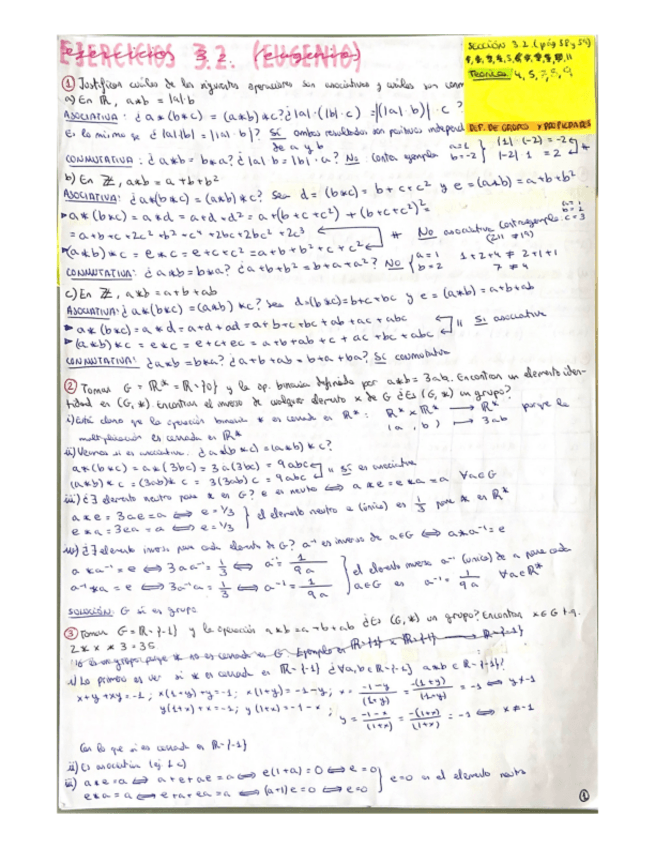 EJERCICIOS 3.2. (EUGENIO)
SECCIÓN 3.2. (pág 58 y 59)
TEÓRICOS: 4, 5, 7, 8, 9
DEF. DE GRUPOS Y PROPIEDADES
① Justifican cuáles de las siguientes operaciones son asociativas y cuáles son conm
a) En ℝ, a*b = |a|·b
ASOCIATIVA: ¿a*(b*c) = (a*b)*c? ¿|a|·(|b|·c) = |(|a|·b)|·c ?
Es lo mismo se ¿|a|·|b| = ||a|·b|? Sí ambos resultados son positivos independ
de a y b
CONMUTATIVA: ¿a*b = b*a? ¿|a|b = |b|·a? No. Contra ejemplo a=1 b=-2 } |1|·(-2) = -2 |-2|·1 = 2 ≠
b) En ℤ, a*b = a+b+b²
ASOCIATIVA: ¿a*(b*c) = (a*b)*c? Sea d = (b*c) = b+c+c² y e = (a*b) = a+b+b²
▸a*(b*c) = a*d = a+d+d² = a+(b+c+c²) + (b+c+c²)² =
= a+b+c+2c²+b²+c⁴+2bc+2bc²+2c³
▸(a*b)*c = e*c = e+c+c² = a+b+b²+c+c² ≠ No asociativa Contraejemplo: a=1 b=2 c=3
CONMUTATIVA: ¿a*b=b*a? ¿a+b+b² = b+a+a²? NO { a=1 b=2 1+2+4 ≠ 2+1+1
7 ≠ 4
c) En ℤ, a*b = a+b+ab
ASOCIATIVA: ¿a*(b*c) = (a*b)*c? Sea d=(b*c)=b+c+bc y e=(a*b)=a+b+ab
▸a*(b*c) = a*d = a+d+ad = a+b+c+bc+ab+ac+abc
▸(a*b)*c = e*c = e+c+ec = a+b+ab+c+ac+bc+abc = Sí asociativa
CONMUTATIVA: ¿a*b = b*a? ¿a+b+ab = b+a+ba? Sí conmutativa
② Tomar G = ℝ* = ℝ-{0} y la op. binaria definida por a*b = 3ab. Encontrar un elemento iden-
tidad en (G, *). Encontrar el inverso de cualquier elemento x de G ¿Es (G, *) un grupo?
i) Está claro que la operación binaria * es cerrada en ℝ*: ℝ* × ℝ* → ℝ* porque la
multiplicación es cerrada en ℝ* (a, b) ↦ 3ab
ii) Veamos si es asociativa. ¿a*(b*c) = (a*b)*c?
a*(b*c) = a*(3bc) = 3a(3bc) = 9abc
(a*b)*c = (3ab)*c = 3(3ab)c = 9abc = Sí es asociativa
iii) ¿∃ elemento neutro para * en G? e es neutro ⟺ a*e = e*a = a ∀a∈G
a*e = 3ae = a ⟺ e = 1/3
e*a = 3ea = a ⟺ e = 1/3 } el elemento neutro e (único) es 1/3 para * en ℝ*
iv) ¿∃ elemento inverso para cada elemento de G? a⁻¹ es inverso de a∈G ⟺ a*a⁻¹ = e
a*a⁻¹ = e ⟺ 3aa⁻¹ = 1/3 ⟺ a⁻¹ = 1/9a
a⁻¹*a = e ⟺ 3a⁻¹a = 1/3 ⟺ a⁻¹ = 1/9a } el elemento inverso a⁻¹ (único) de a para cada
a∈G es a⁻¹ = 1/9a ∀a∈ℝ*
SOLUCIÓN: G sí es grupo
③ Tomar G = ℝ-{-1} y la operación a*b = a+b+ab ¿Es (G, *) un grupo? Encontrar x∈G t.q.
2*x*3 = 35
i) Lo primero es ver si * es cerrada en ℝ-{-1} ¿∀a,b∈ℝ-{-1} a*b∈ℝ-{-1}?
x+y+xy = -1; x(1+y)+y = -1; x(1+y) = -1-y; x = -1-y/(1+y) = -(1+y)/(1+y) = -1 ⟺ y≠-1
y(1+x)+x = -1; y(1+x) = -1-x; y = -1-x/(1+x) = -(1+x)/(1+x) = -1 ⟺ x≠-1
Con lo que sí es cerrada en ℝ-{-1}
ii) Es asociativa (ej 1c)
iii) a*e = a ⟺ a+e+ae = a ⟺ e(1+a) = 0 ⟺ e = 0
e*a = a ⟺ e+a+ea = a ⟺ (a+1)e = 0 ⟺ e=0 } e=0 es el elemento neutro
①